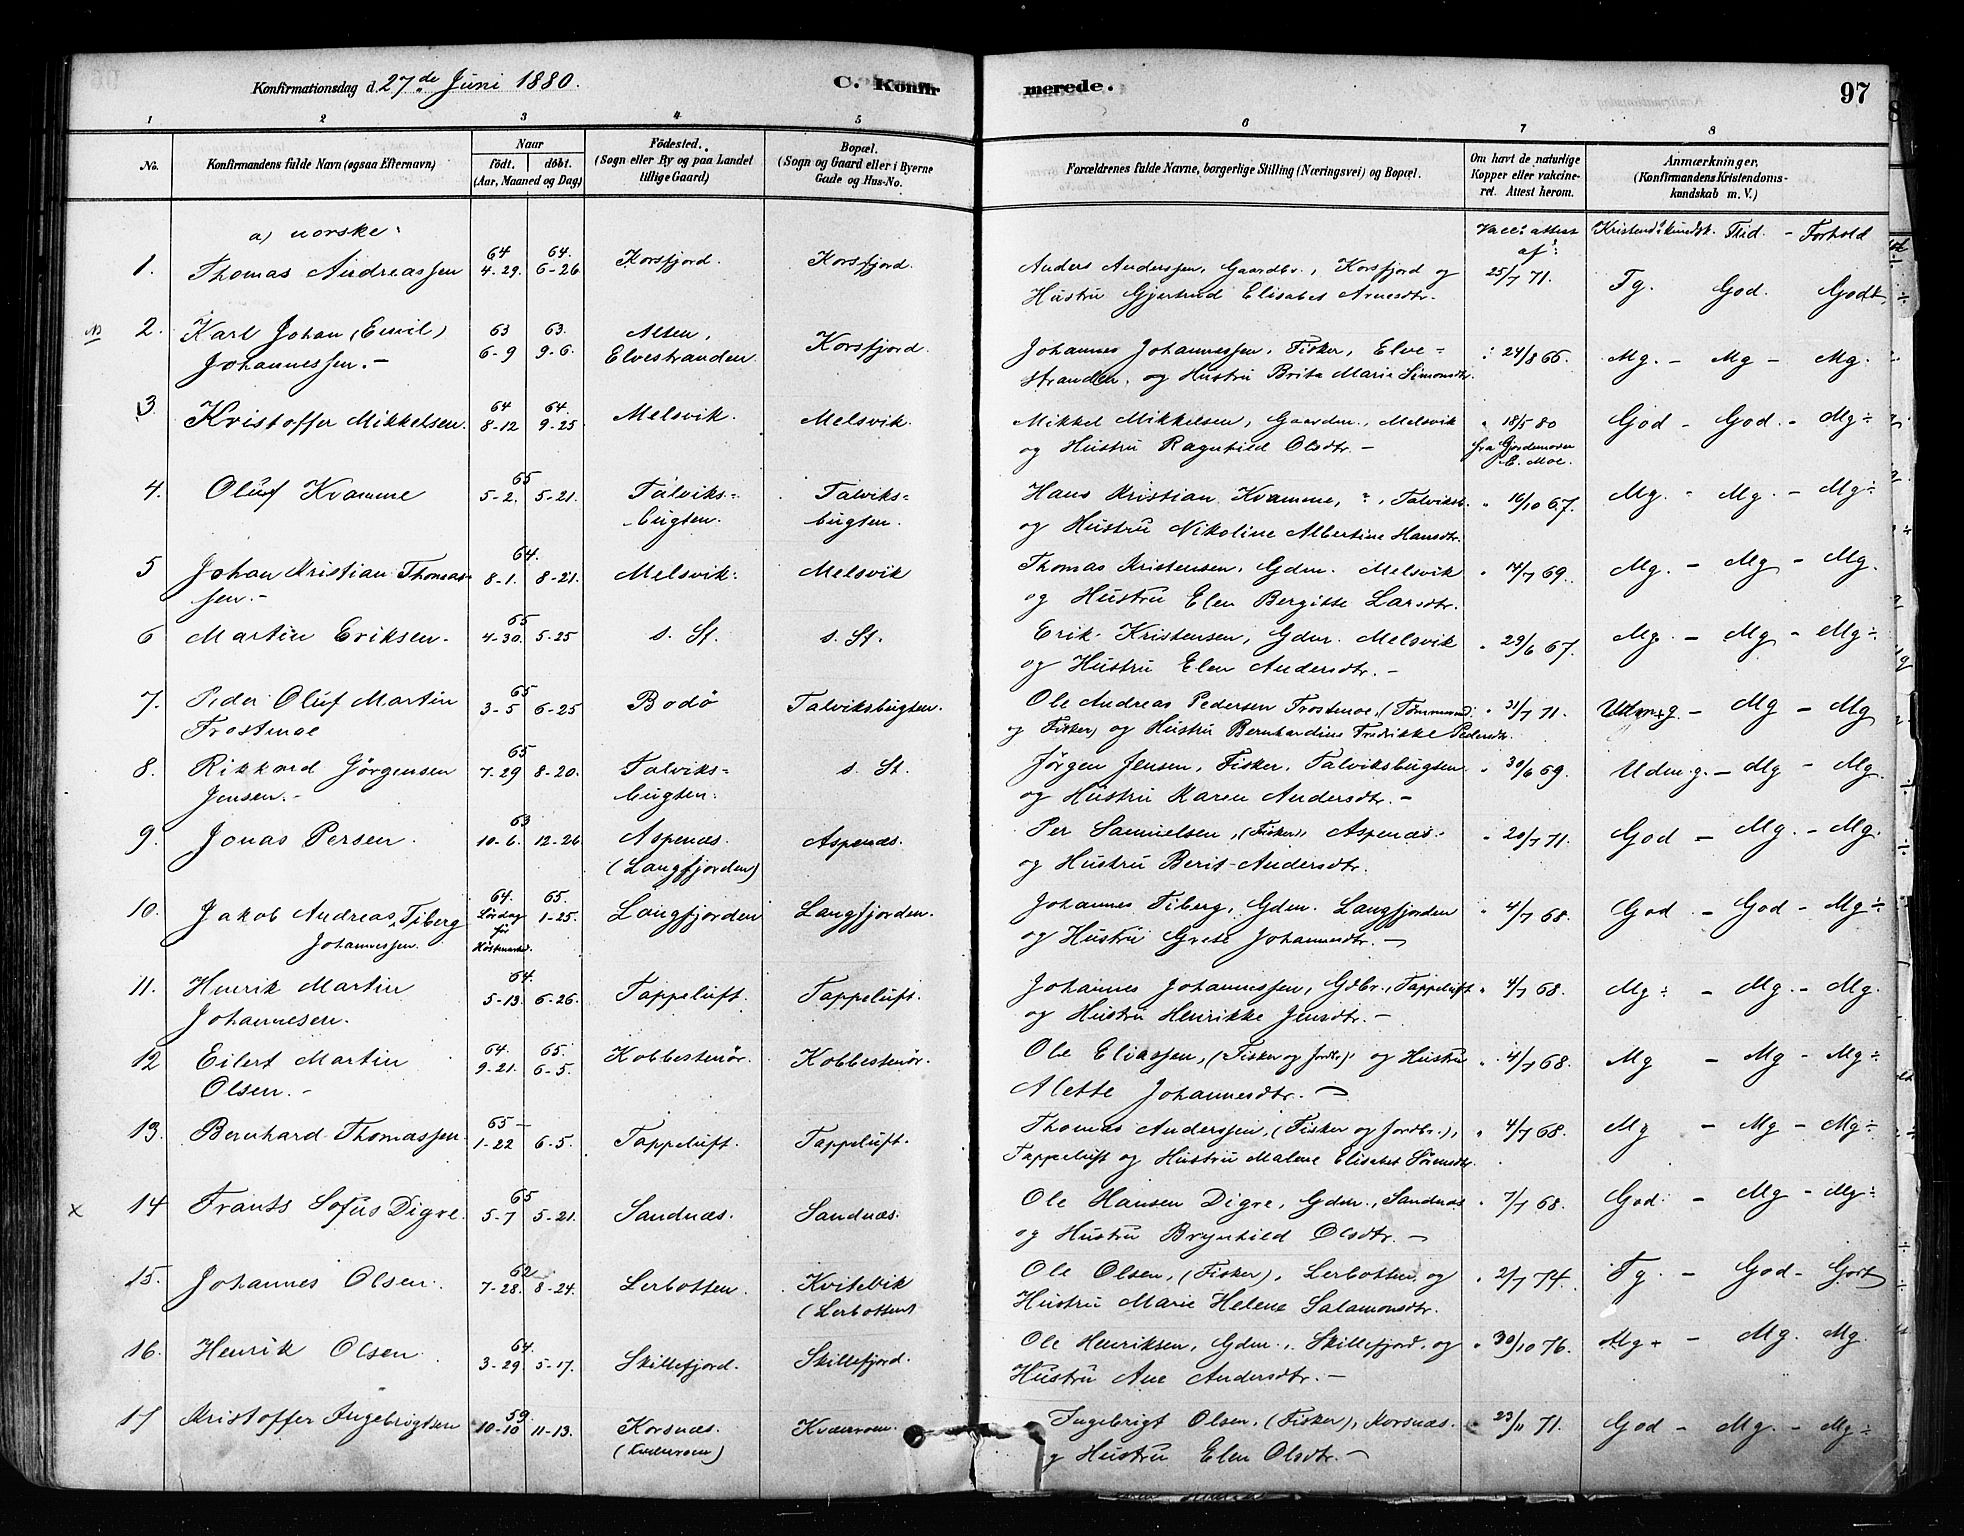 Konfirmationsdag d. 27de Juni 1880.
C. Konfirmerede.
97
1 2 3 4 5 6 7 8
No.
Konfirmandens fulde Navn (ogsaa Efternavn)
Naar
födt. döbt.
(Aar, Maaned og Dag)
Födested.
(Sogn eller By og paa Landet
tillige Gaard)
Bopæl.
(Sogn og Gaard eller i Byerne
Gade og Hus-No.
Forældrenes fulde Navne, borgerlige Stilling (Næringsvei) og Bopæl.
Om havt de naturlige
Kopper eller vakcineret. Attest herom.
Anmærkninger.
(Konfirmandens Kristendomskundskab m. V.)
a) norske:
Vacc. attest af:
Kristend. kundsk. Flid. - Forhold
1. Thomas Andreassen 64 4-29. 64. 6-26 Korsfjord. Korsfjord. Anders Anderssen, Gaardbr., Korsfjord og 25/7 71. Tg. God. Godt
Hustru Gjertrud Elisabet Arnesdtr.
2. Karl Johan (Emil) 63 6-9 63. 9-6. Alten, Korsfjord. Johannes Johannessen, Fisker, Elve= 24/8 66. Mg. - Mg - Mg.
Johannessen. - Elvestranden stranden, og Hustru Brita Marie Simonsdtr.
3. Kristoffer Mikkelsen. 64 8-12 64. 9-25 Melsvik. Melsvik. Mikkel Mikkelsen, Gaardm., Melsvik 18/5 80 God - God. - Mg÷
og Hustru Ragnhild Olsdtr. - fra Gjordemoder
E. Moe.
4. Oluf Kvamme 65 5-2. 5-21. Talviks= Talviks= Hans Kristian Kvamme, Talviksb. 16/10 67. Mg. - Mg. - Mg÷
bugten. bugten. og Hustru Nikoline Albertine Hansdtr.
5 Johan Kristian Thomas= 64. 8-1. 8-21. Melsvik. Melsvik Thomas Kristensen, Gdm. Melsvik 4/7 69. Mg. - Mg - Mg.
sen. - og Hustru Elen Bergitte Larsdtr.
6 Martin Eriksen. 65 4-30. 5-25 s. St. s. St. Erik Kristensen, Gdm. Melsvik 29/6 67. Mg. - Mg - Mg÷
og Hustru Elen Andersdtr. -
7. Peder Oluf Martin 65 3-5 6-25 Bodö Talviksbugten. Ole Andreas Pedersen Frostmoe, (Tømmermd. 31/7 71. Udm.g. - Mg - Mg
Frostmoe og Fisker) og Hustru Bernhardine Fredrikke Pedersdtr.
8. Rikkard Jørgensen 65 7-29 8-20. Talviks= s. St. Jørgen Jensen, Fisker, Talviksbugten 30/6 69. Udm.g. - Mg - Mg.
Jensen. - bugten. og Hustru Karen Andersdtr. -
9. Jonas Persen 63 10-6. 12-26 Aspenæs Aspenæs. Per Samuelsen, (Fisker), Aspenæs. 20/7 71. God - Mg. - Mg.
(Langfjorden) og Hustru Berit Andersdtr.
10. Jakob Andreas Tiberg 64. Lørdag før 65. 1-25. Langfjorden Langfjorden. Johannes Tiberg, Gdm. Langfjorden 4/7 68. God - God - Mg÷
Johannessen. og Hustru Grete Johannesdtr. -
11. Henrik Martin 64. 5-13. 6-26. Tappeluft. Tappeluft. Johannes Johannessen, Gdbr., Tappeluft 4/7 68. Mg÷ - Mg. - Mg.
Johannesen. og Hustru Henrikke Jensdtr. -
12 Eilert Martin 64. 9-21. 65. 6-5. Kobbestenør. Kobbestenør. Ole Eliassen, (Fisker og Jordb.) og Hustru 4/7 68. Mg - Mg - Mg÷
Olsen. - Alette Johannesdtr. -
13. Bernhard Thomassen. 65 - 1-22 6-5. Tappeluft. Tappeluft. Thomas Anderssen, (Fisker og Jordbr.), 4/7 68. Mg - Mg - Mg÷
Tappeluft og Hustru Malene Elisabet Sørensdtr.
x 14 Frants Sofus Digre. 65 5-7 5-21. Sandnæs. Sandnæs. Ole Hansen Digre, Gdm., Sandnæs 7/7 68. God - Mg - Mg÷
og Hustru Brynhild Olsdtr. -
15. Johannes Olsen. 62 7-28. 8-24. Lerbotten. Kvitevik Ole Olsen, (Fisker), Lerbotten og 2/7 74. Tg. - God - Godt
(Lerbotten) Hustru Marie Helene Salamonsdtr.
16. Henrik Olsen. 64 3-29. 5-17. Skillefjord. Skillefjord. Ole Henriksen, Gdm., Skillefjord, og 30/10 76. Mg+ - Mg. Mg.
Hustru Ane Andersdtr. -
17 Kristoffer Ingebrigtsen 59. 10-10 11-13. Korsnæs. Kvænvom. Ingebrigt Olsen, (Fisker), Korsnæs. 23/11 71. God - Mg. - Mg÷
g Hustru Elen Olsdtr. -